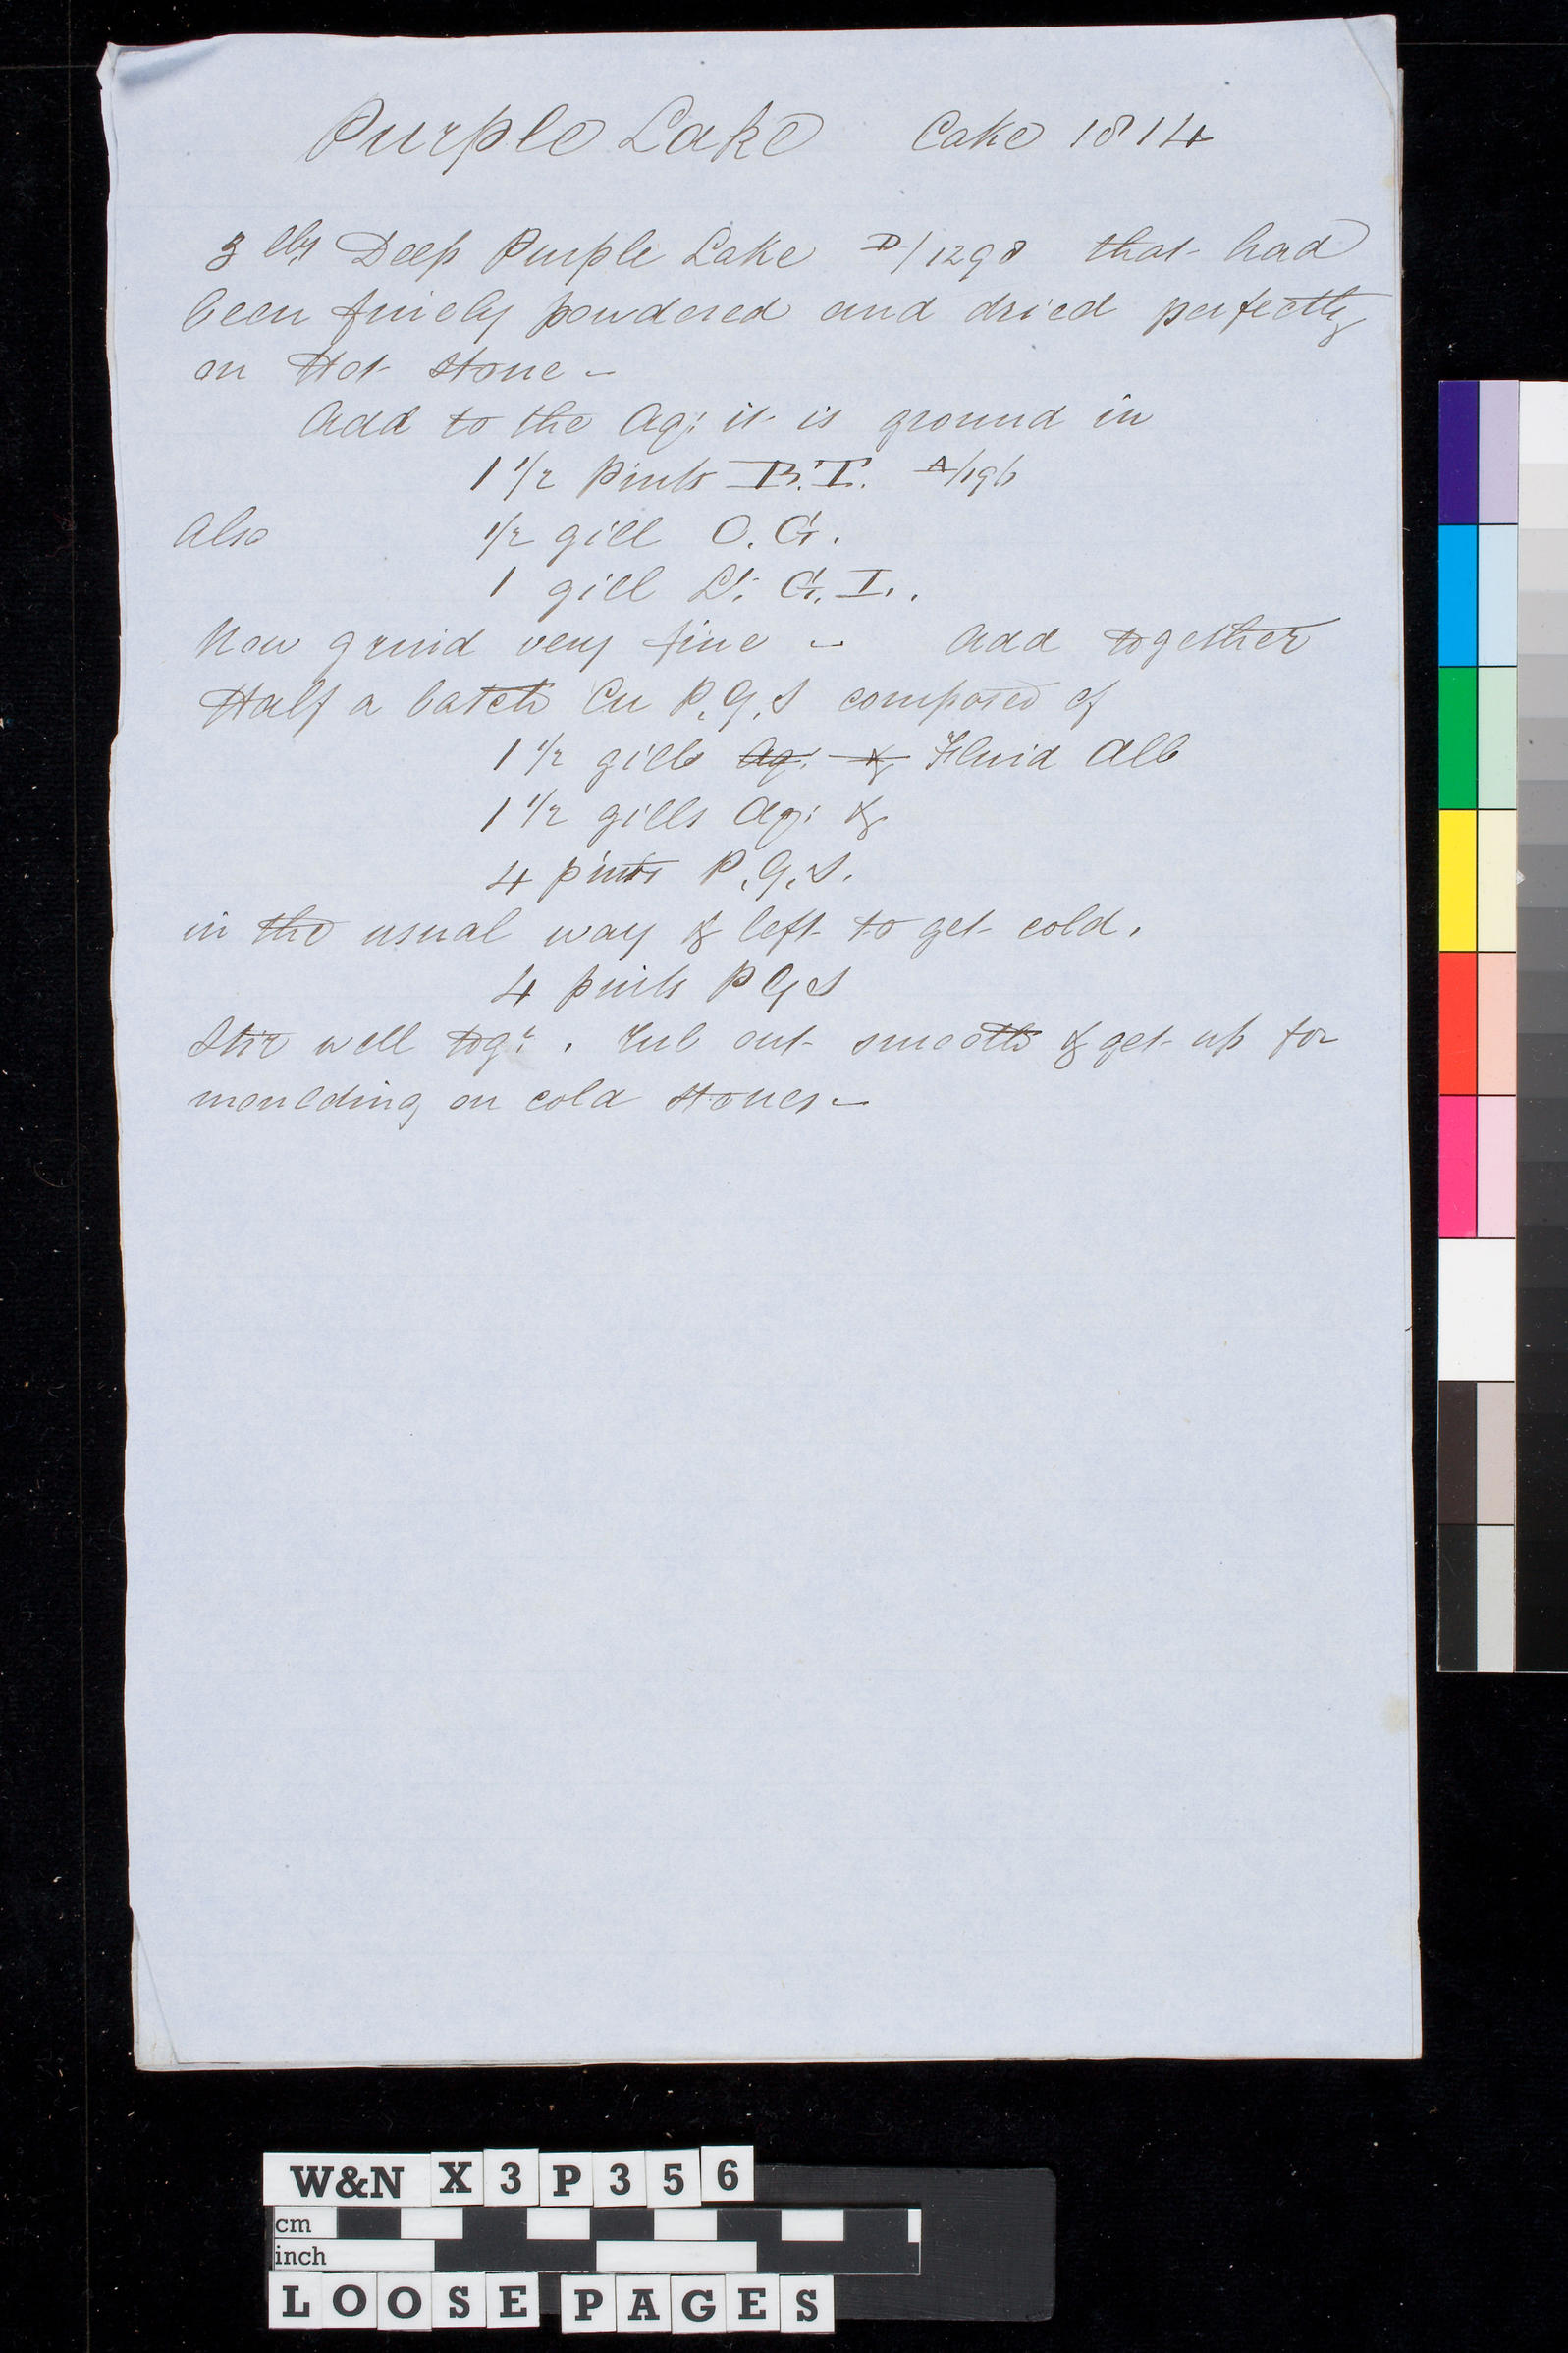 Purple Lake Cake 1814
3 lbs Deep Purple Lake D/1298 that had
been finely powdered and dried perfectly
on Hot Stone –
Add to the Aq: it is ground in
1 1/2 Pints B.T. A/196
Also 1/2 gill O.G.
1 gill Lt: G.I..
Now grind very fine – Add together
Half a batch Cu P.G.S composed of
1 1/2 gills Aq: & Fluid Alb
1 1/2 gills Aq: &
4 pints P.G.S.
in the usual way & left to get cold.
4 pints P G S
Stir well togr. . Rub out smooth & get up for
moulding on cold stones –
W&N X3P356
cm
inch
LOOSE PAGES